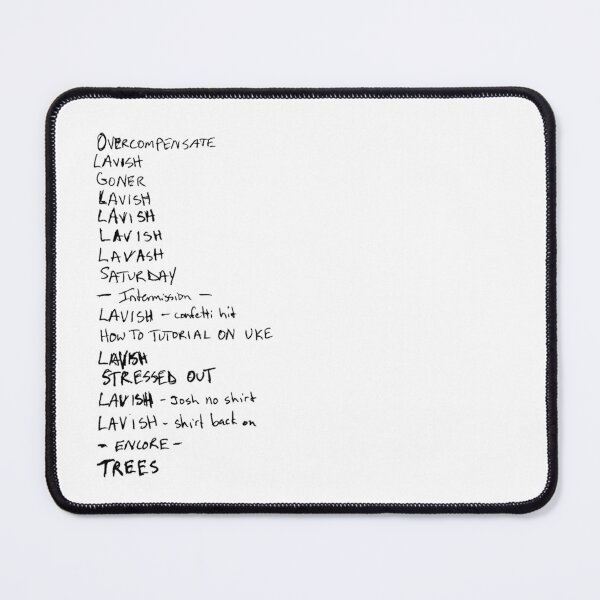 OVERCOMPENSATE
LAVISH
GONER
LAVISH
LAVISH
LAVISH
LAVASH
SATURDAY
- Intermission -
LAVISH - confetti hit
HOW TO TUTORIAL ON UKE
LAVISH
STRESSED OUT
LAVISH - Josh no shirt
LAVISH - shirt back on
- ENCORE -
TREES